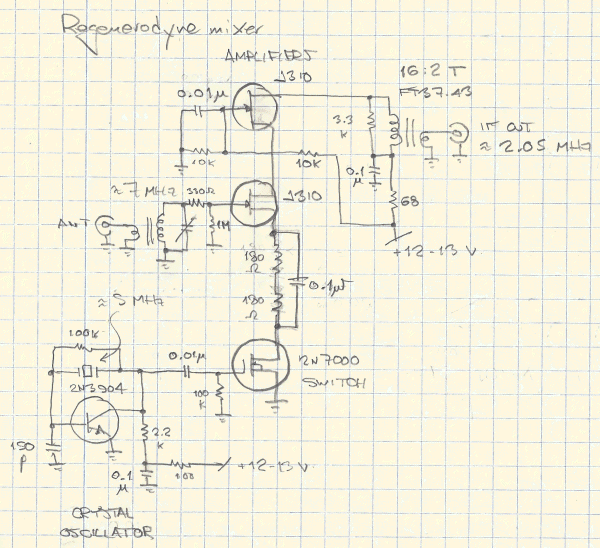 Regenerodyne mixer
AMPLIFIERS
J310
16:2 T
FT37.43
0.01μ
3.3
K
IF OUT
≈ 2.05 MHz
10K
10K
0.1
μ
≈7 MHz
330Ω
J310
68
ANT
1M
+12-13 V
180
Ω
0.1μF
180
Ω
≈ 5 MHz
100K
0.01μ
2N7000
SWITCH
2N3904
100
K
2.2
K
150
P
0.1
μ
100
+12-13V
CRYSTAL
OSCILLATOR